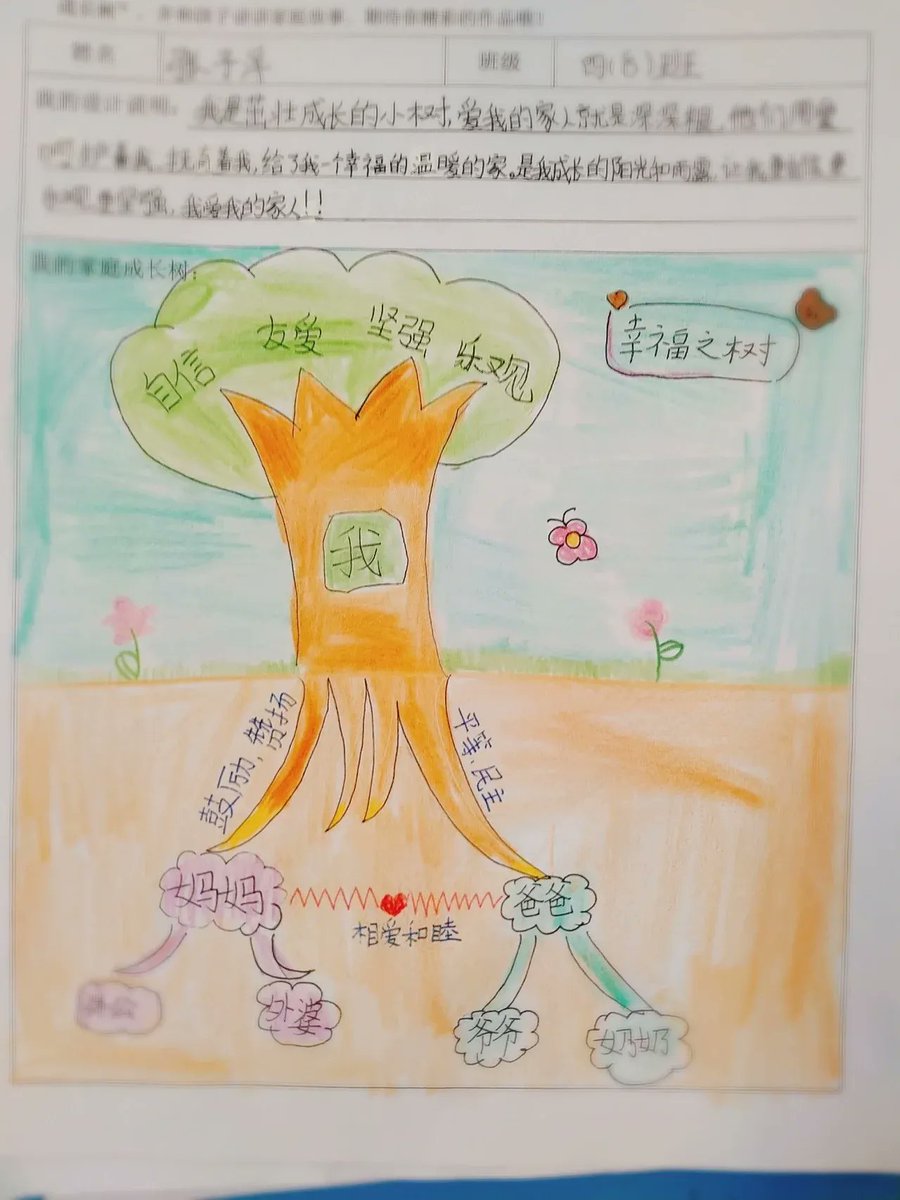 成长树”，并和孩子讲讲家庭故事，期待你精彩的作品哦！
姓名 张子洋 班级 四（8）班
我的设计说明：我是茁壮成长的小树，爱我的家人就是深深根，他们用爱
呵护着我，扶育着我，给了我一个幸福的温暖的家。是我成长的阳光和雨露，让我更
更坚强，我爱我的家人！！
我的家庭成长树：
幸福之树
自信 友爱 坚强 乐观
我
鼓励，赞扬
平等、民主
妈妈 爸爸
相爱和睦
外公 外婆 爷爷 奶奶